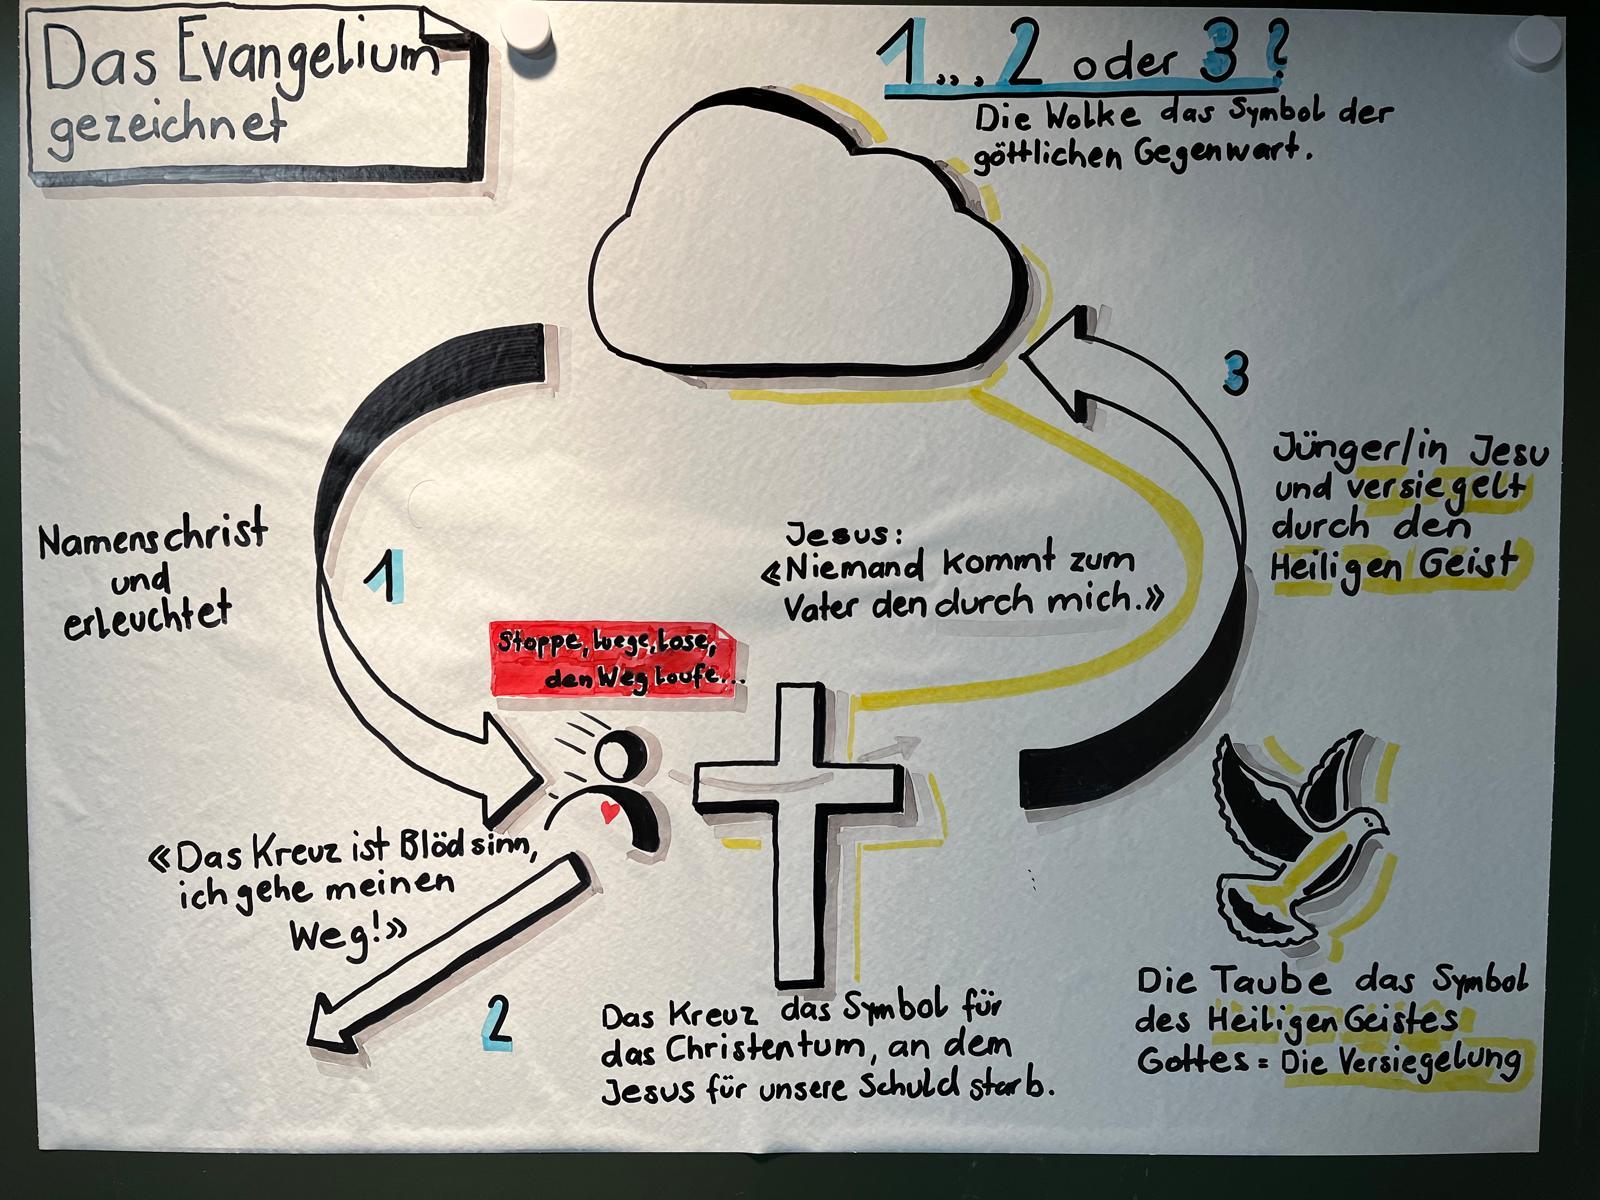 Das Evangelium
gezeichnet
1...2 oder 3?
Die Wolke das Symbol der
göttlichen Gegenwart.
3
Jünger/in Jesu
und versiegelt
durch den
Heiligen Geist
Namenschrist
und
erleuchtet
1
Jesus:
«Niemand kommt zum
Vater den durch mich.»
Stoppe, luege, lose,
den Weg loufe...
«Das Kreuz ist Blödsinn,
ich gehe meinen
Weg!»
2
Das Kreuz das Symbol für
das Christentum, an dem
Jesus für unsere Schuld starb.
Die Taube das Symbol
des Heiligen Geistes
Gottes = Die Versiegelung